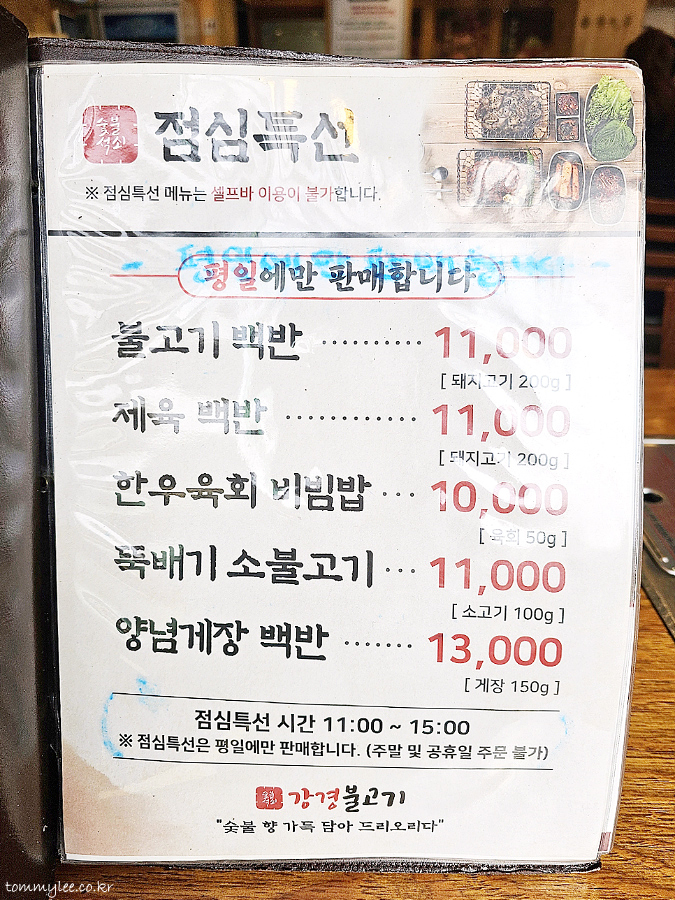 숯불
석쇠
점심특선
※ 점심특선 메뉴는 셀프바 이용이 불가합니다.
평일에만 판매합니다
불고기 백반 ·········· 11,000
[ 돼지고기 200g ]
제육 백반 ············ 11,000
[ 돼지고기 200g ]
한우육회 비빔밥 ··· 10,000
[ 육회 50g ]
뚝배기 소불고기 ··· 11,000
[ 소고기 100g ]
양념게장 백반 ······· 13,000
[ 게장 150g ]
점심특선 시간 11:00 ~ 15:00
※ 점심특선은 평일에만 판매합니다. (주말 및 공휴일 주문 불가)
숯불
석쇠
강경불고기
"숯불 향 가득 담아 드리오리다"
tommylee.co.kr